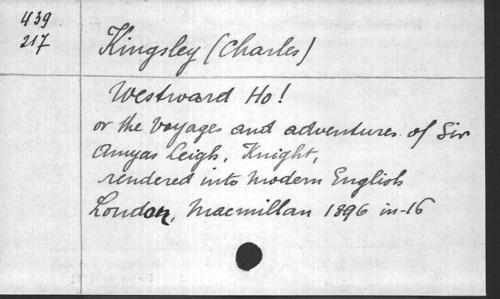 439
217
Kingsley (Charles)
Westward Ho!
or the Voyages and adventures of Sir
Amyas Leigh, Knight,
rendered into modern English
London, Macmillan 1896 in-16